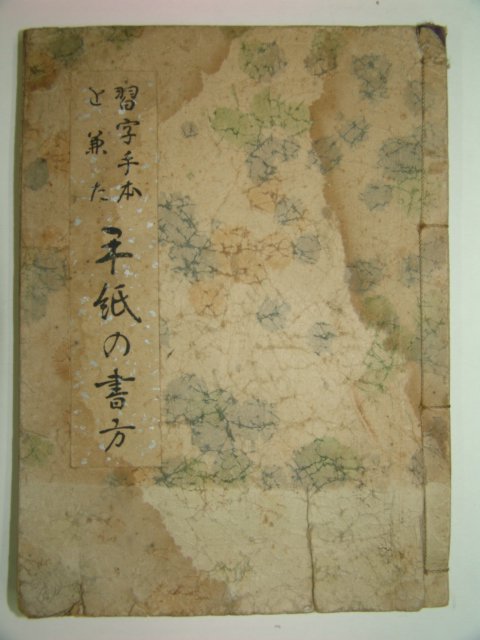 習字手本
と兼た
手紙の書方